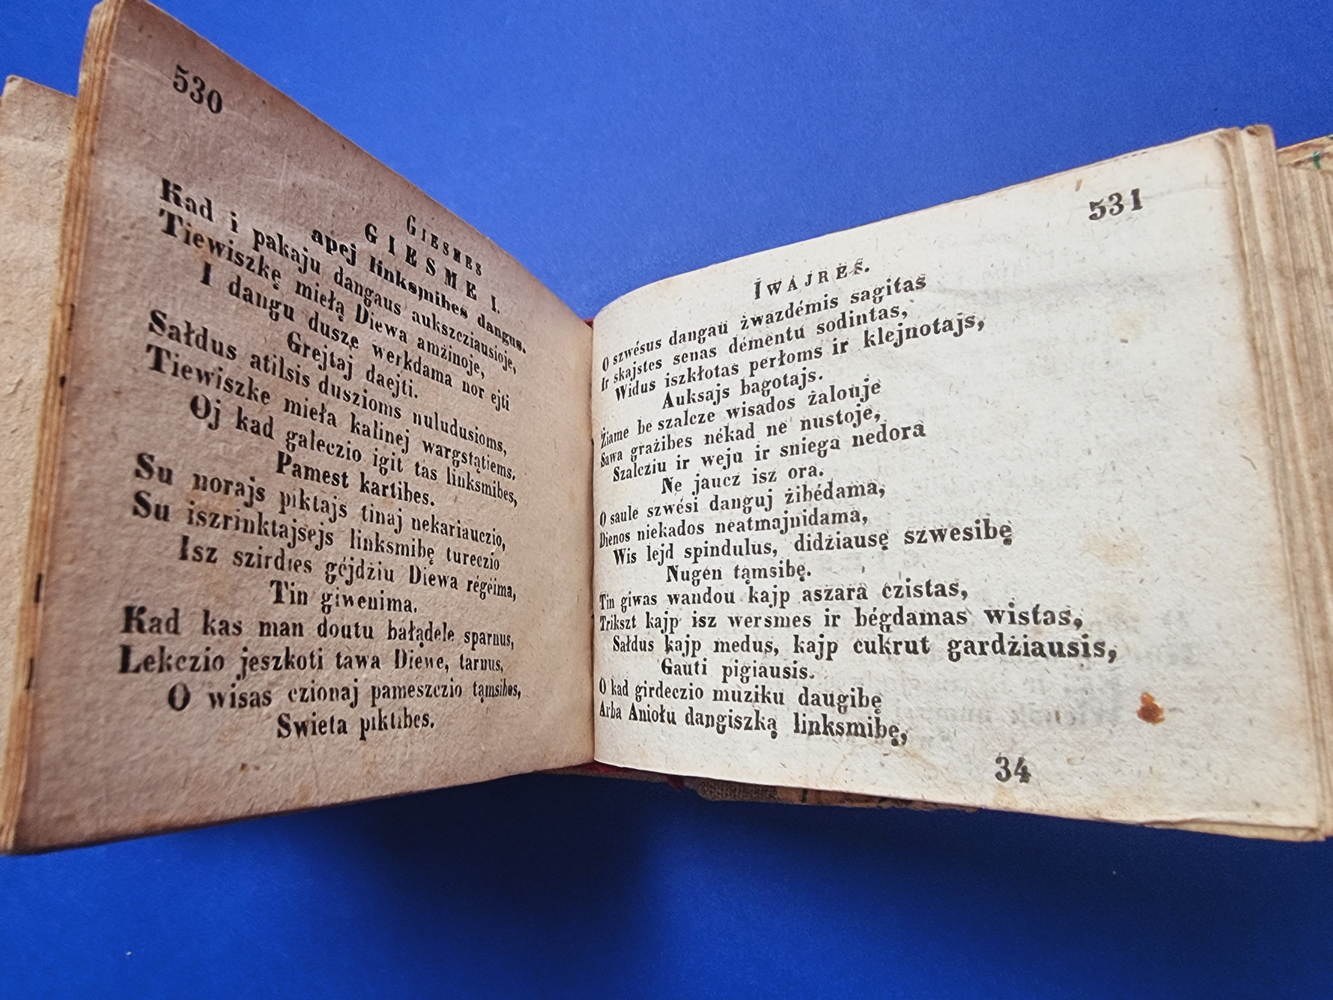 530
GIESMES
GIESME I.
apej linksmibes dangus.
Kad i pakaju dangaus aukszcziausioje,
Tiewiszkę miełą Diewa amżinoje,
I dangu duszę werkdama nor ejti
Grejtaj daejti.
Sałdus atilsis duszioms nuludusioms,
Tiewiszke mieła kalinej wargstątiems.
Oj kad galeczio igit tas linksmibes,
Pamest kartibes.
Su norajs piktajs tinaj nekariauczio,
Su iszrinktajsejs linksmibę tureczio
Isz szirdies géjdżiu Diewa régéima,
Tin giwenima.
Kad kas man doutu bałądele sparnus,
Lekczio jeszkoti tawa Diewe, tarnus,
O wisas czionaj pameszczio tąmsibes,
Swieta piktibes.
531
IWAJRĖS.
O szwésus dangau żwazdémis sagitas
Ir skajstes senas démentu sodintas,
Widus iszkłotas perłoms ir klejnotajs,
Auksajs bagotajs.
Żiame be szalcze wisados żalouje
Sawa grażibes nékad ne nustoje,
Szalcziu ir weju ir sniega nedora
Ne jaucz isz ora.
O saule szwési danguj żibédama,
Dienos niekados neatmajnidama,
Wis lejd spindulus, didżiausę szwesibę
Nugén tąmsibę.
Tin giwas wandou kajp aszara czistas,
Trikszt kajp isz wersmes ir bégdamas wistas,
Sałdus kajp medus, kajp cukrut gardżiausis,
Gauti pigiausis.
O kad girdeczio muziku daugibę
Arba Aniołu dangiszką linksmibę,
34